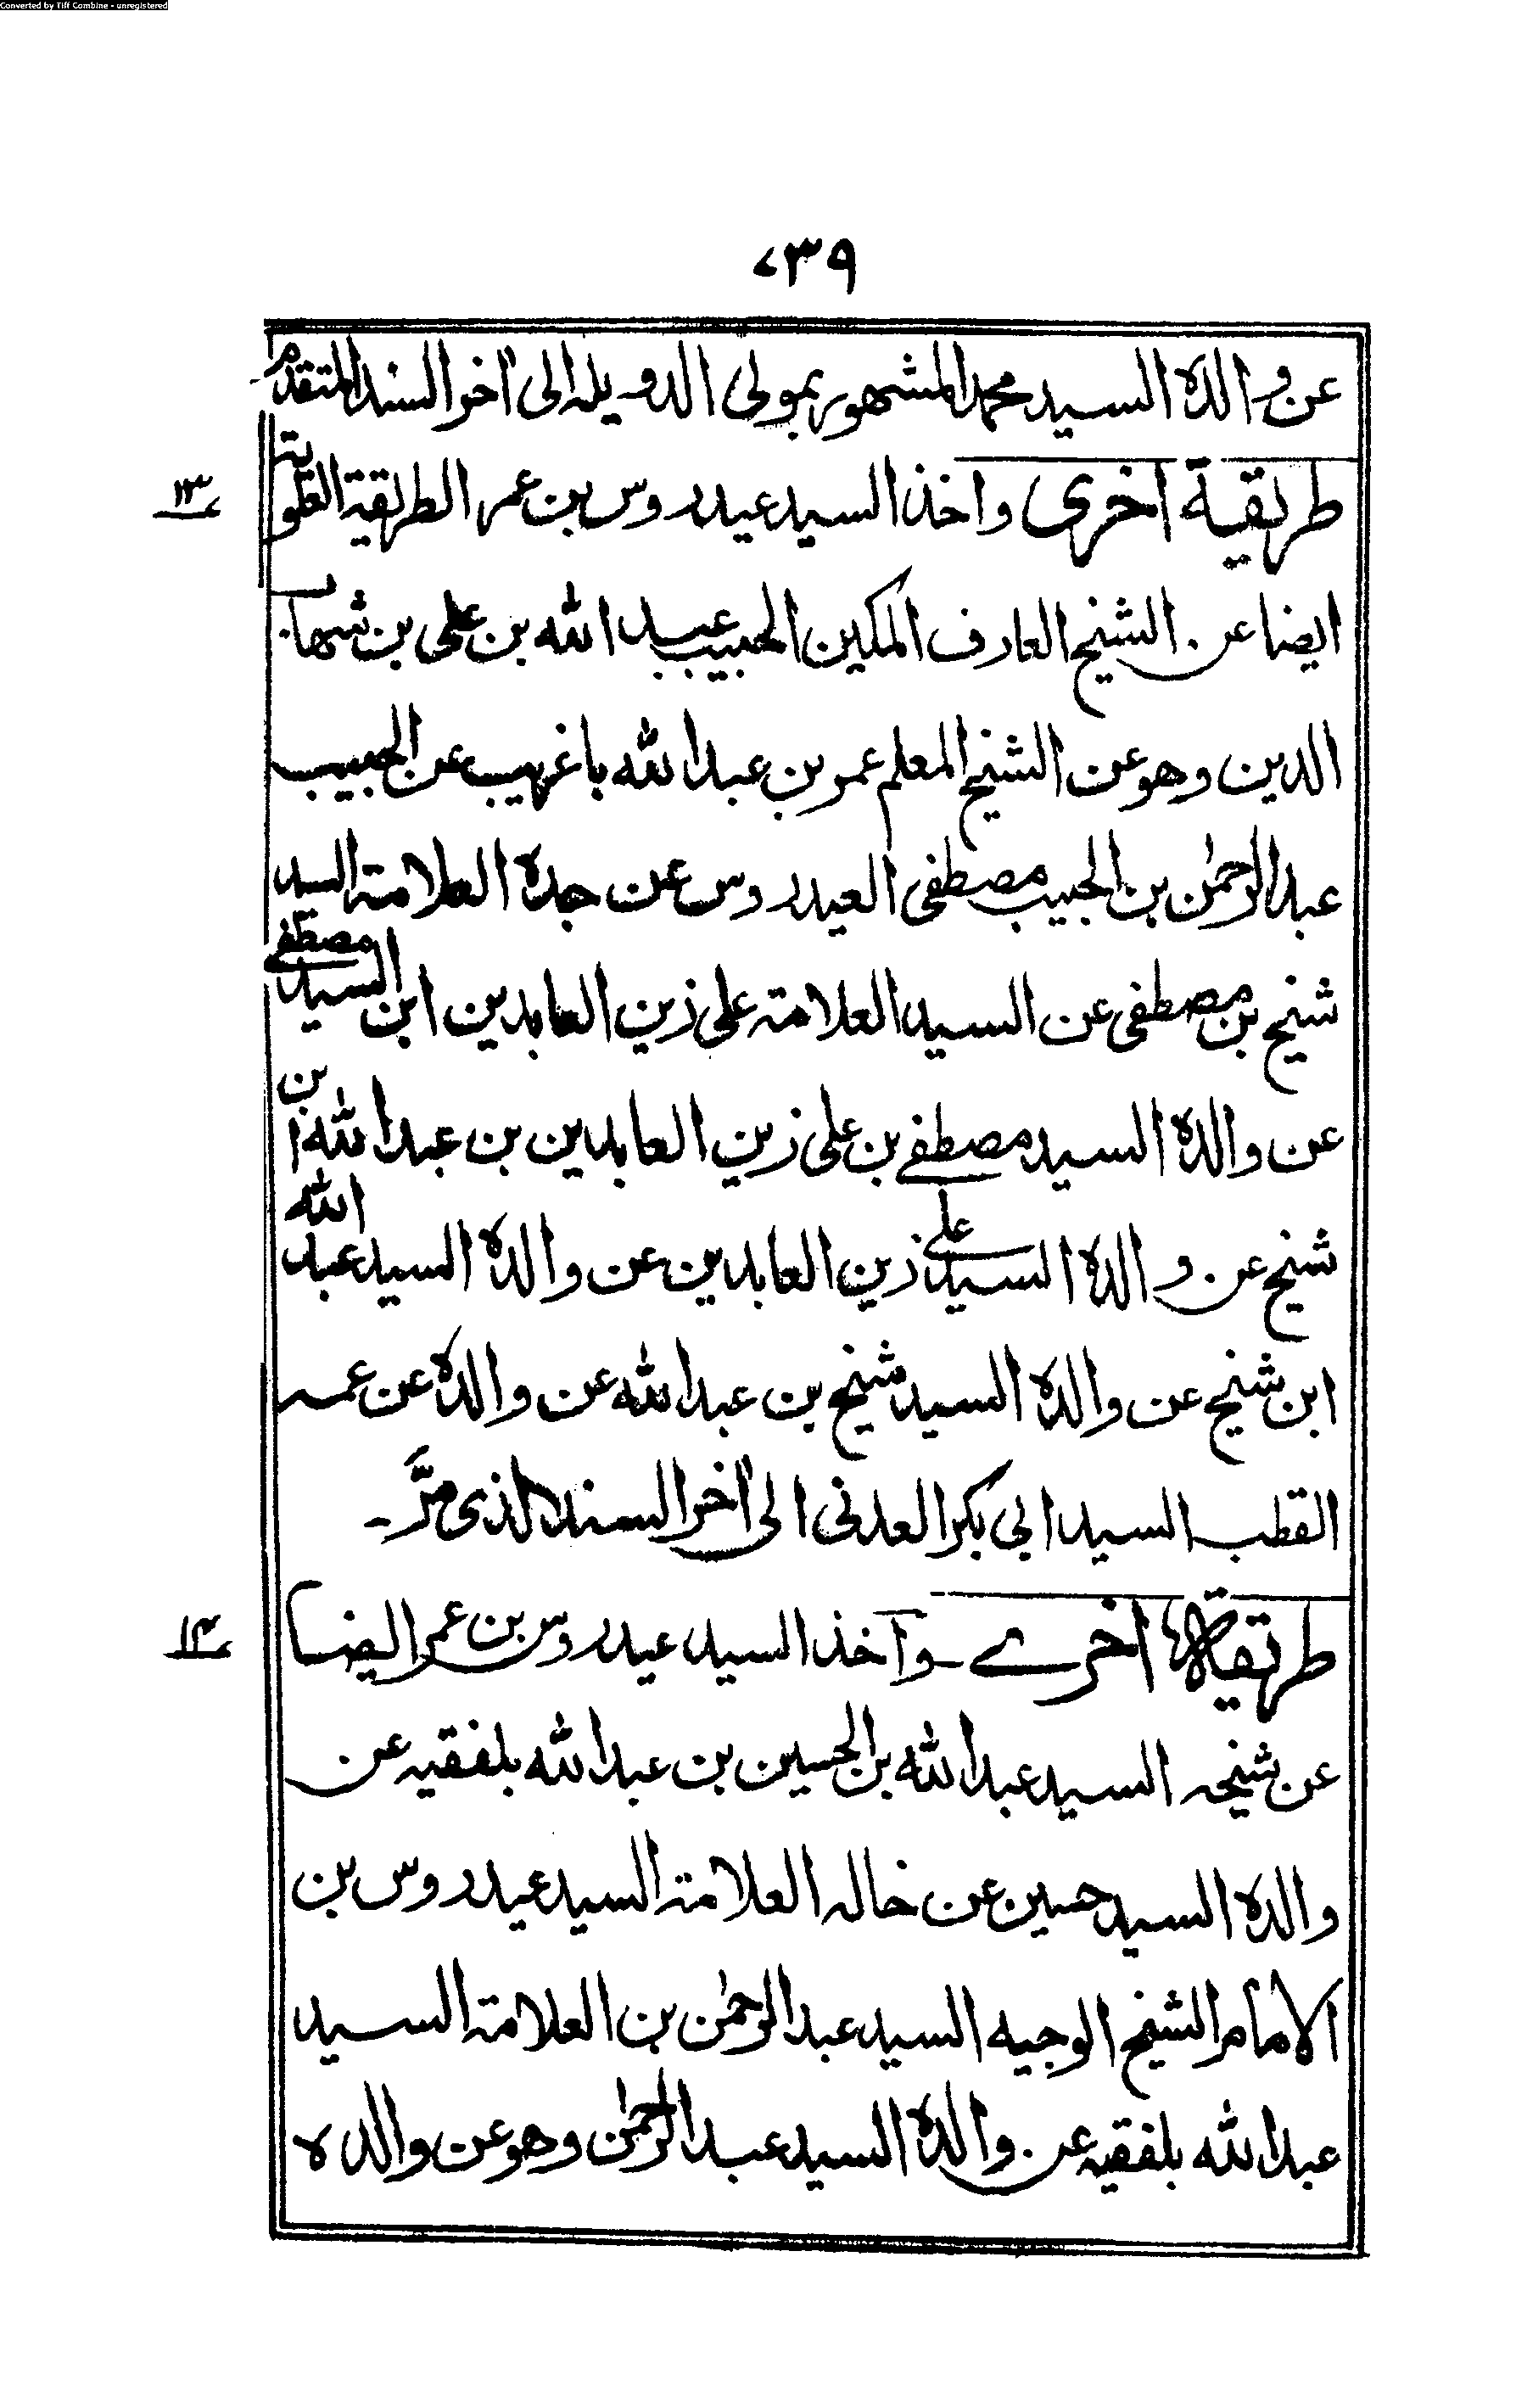 Converted by Tiff Combine - unregistered
٧٣٩
عن والده السيد محمد المشهور بمولى الدويله الى اٰخر السند المتقدم
١٣
طريقة اخرى واخذ السيد عيدروس بن عمر الطريقة العلوية
ايضا عن الشيخ العارف المكين الحبيب عبد الله بن على بن شهاب
الدين وهو عن الشيخ المعلم عمر بن عبد الله باغريب عن الحبيب
عبد الرحمٰن بن الحبيب مصطفى العيدروس عن جده العلامة السيد
شيخ بن مصطفى عن السيد العلامة على زين العابدين ابن السيد مصطفے
عن والده السيد مصطفے بن على زين العابدين بن عبد الله ا بن
شيخ عن والده السيد علے زين العابدين عن والده السيد عبد الله
ابن شيخ عن والده السيد شيخ بن عبد الله عن والده عن عمه
القطب السيد ابى بكر العدنى الى اٰخر السند الذى مرَّ ـ
١٤
طريقة اخرے ـ وآخذ السيد عيدروس بن عمر ايضا
عن شيخه السيد عبد الله بن الحسين بن عبد الله بلفقيه عن
والده السيد حسين عن خاله العلامة السيد عيدروس بن
الامام الشيخ الوجيه السيد عبد الرحمٰن بن العلامة السيد
عبد الله بلفقيه عن والده السيد عبد الرحمٰن وهو عن والده